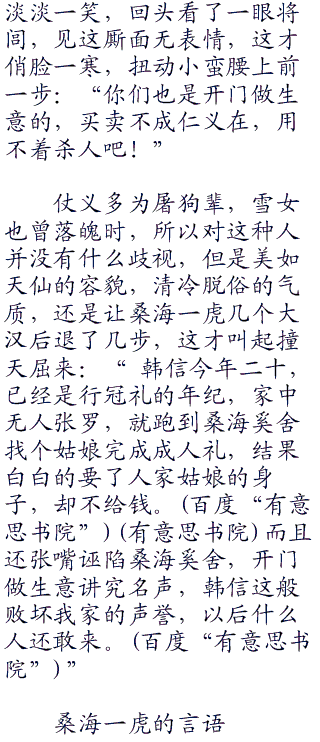 淡淡一笑，回头看了一眼将
闾，见这厮面无表情，这才
俏脸一寒，扭动小蛮腰上前
一步：“你们也是开门做生
意的，买卖不成仁义在，用
不着杀人吧！”
仗义多为屠狗辈，雪女
也曾落魄时，所以对这种人
并没有什么歧视，但是美如
天仙的容貌，清冷脱俗的气
质，还是让桑海一虎几个大
汉后退了几步，这才叫起撞
天屈来：“ 韩信今年二十，
已经是行冠礼的年纪，家中
无人张罗，就跑到桑海奚舍
找个姑娘完成成人礼，结果
白白的要了人家姑娘的身
子，却不给钱。(百度“有意
思书院”)(有意思书院)而且
还张嘴诬陷桑海奚舍，开门
做生意讲究名声，韩信这般
败坏我家的声誉，以后什么
人还敢来。(百度“有意思书
院”)”
桑海一虎的言语